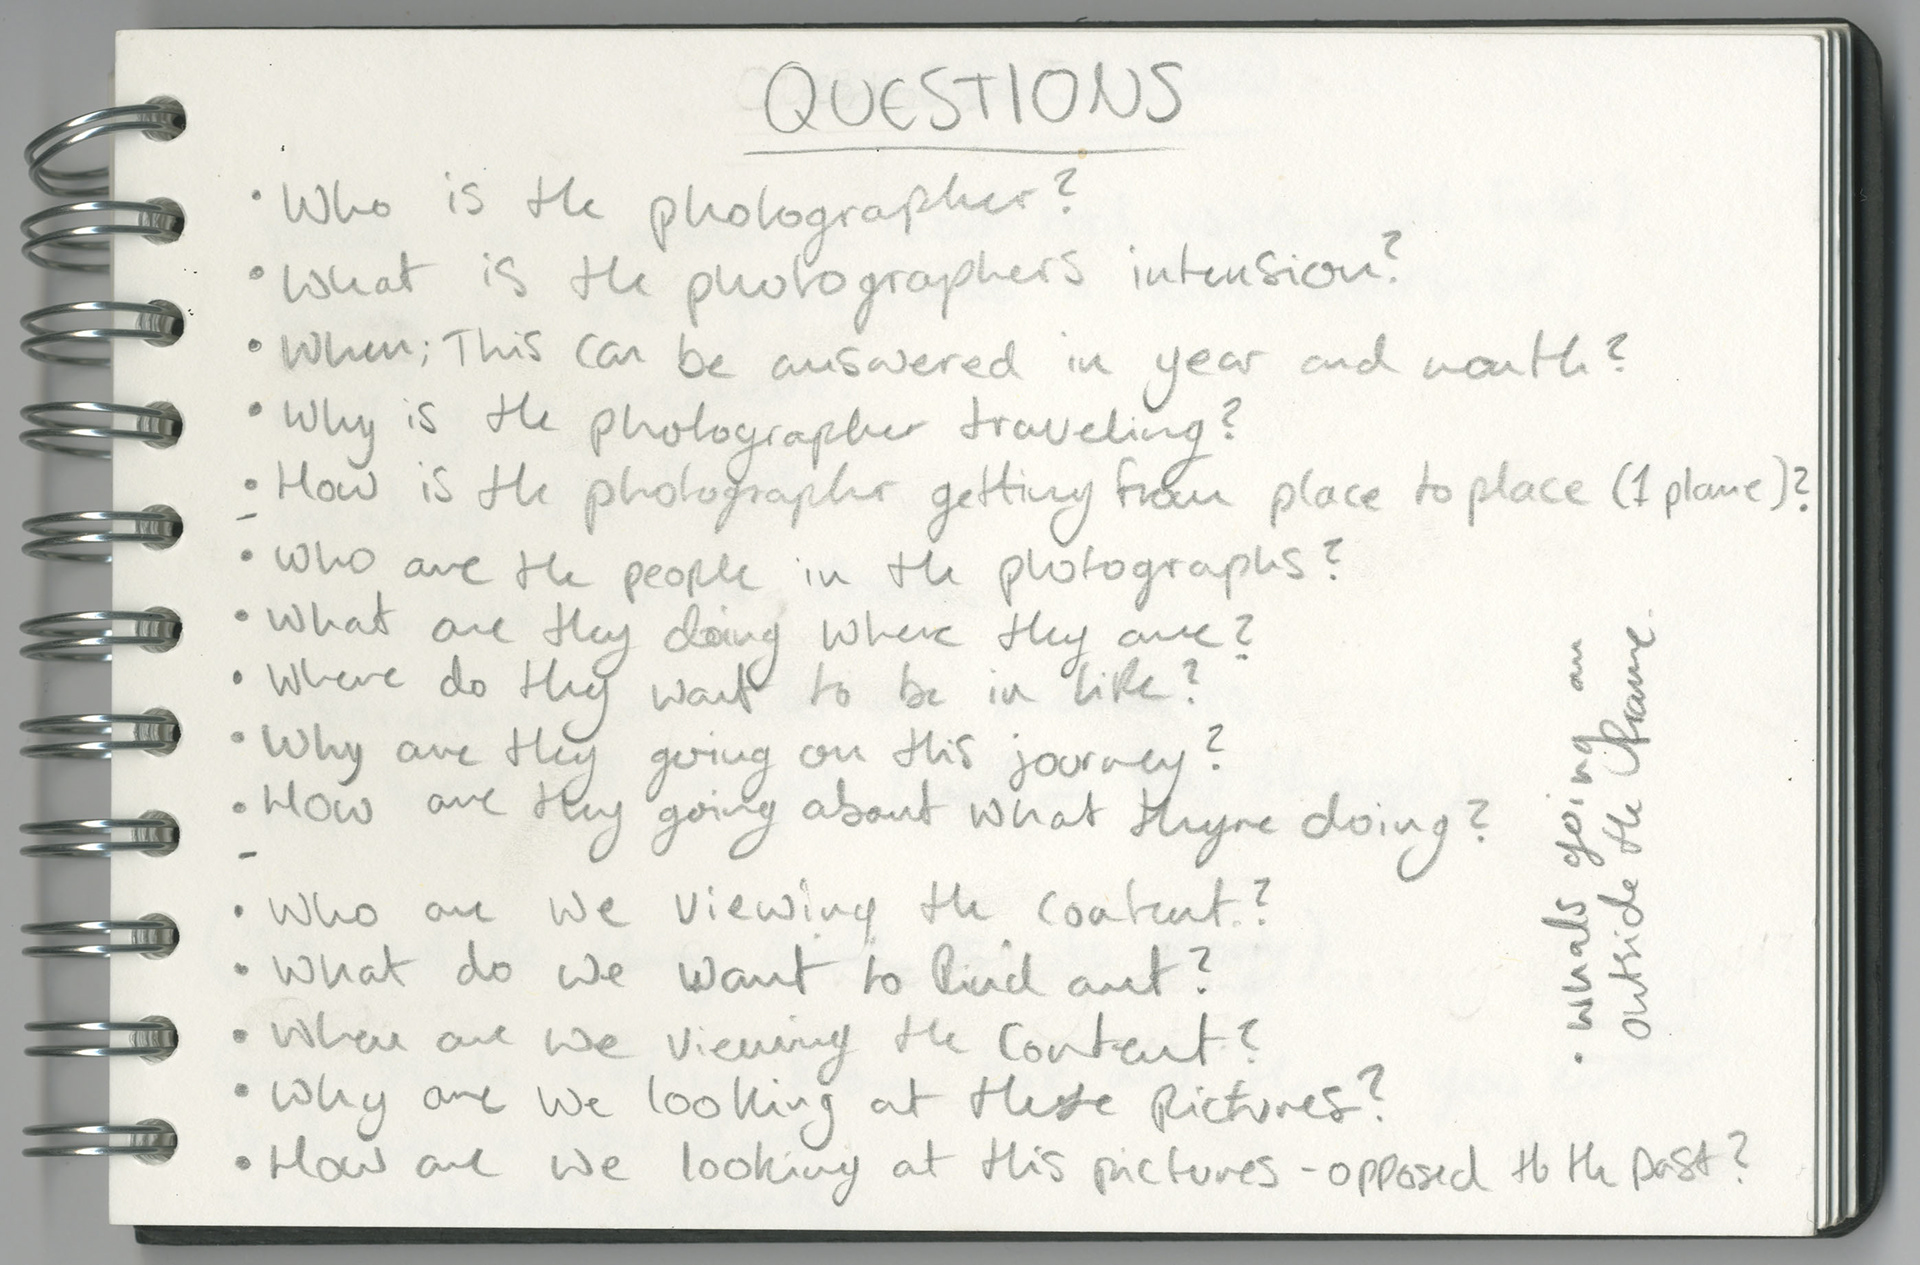 QUESTIONS
• Who is the photographer?
• What is the photographers intension?
• When; This can be answered in year and month?
• Why is the photographer traveling?
• How is the photographer getting from place to place (1 plane)?
-
• Who are the people in the photographs?
• What are they doing where they are?
• Where do they want to be in life?
• Why are they going on this journey?
• How are they going about what theyre doing?
-
• Who are we viewing the content?
• What do we want to find out?
• When are we viewing the content?
• Why are we looking at these pictures?
• How are we looking at this pictures - opposed to the past?
• whats going on
outside the frame.